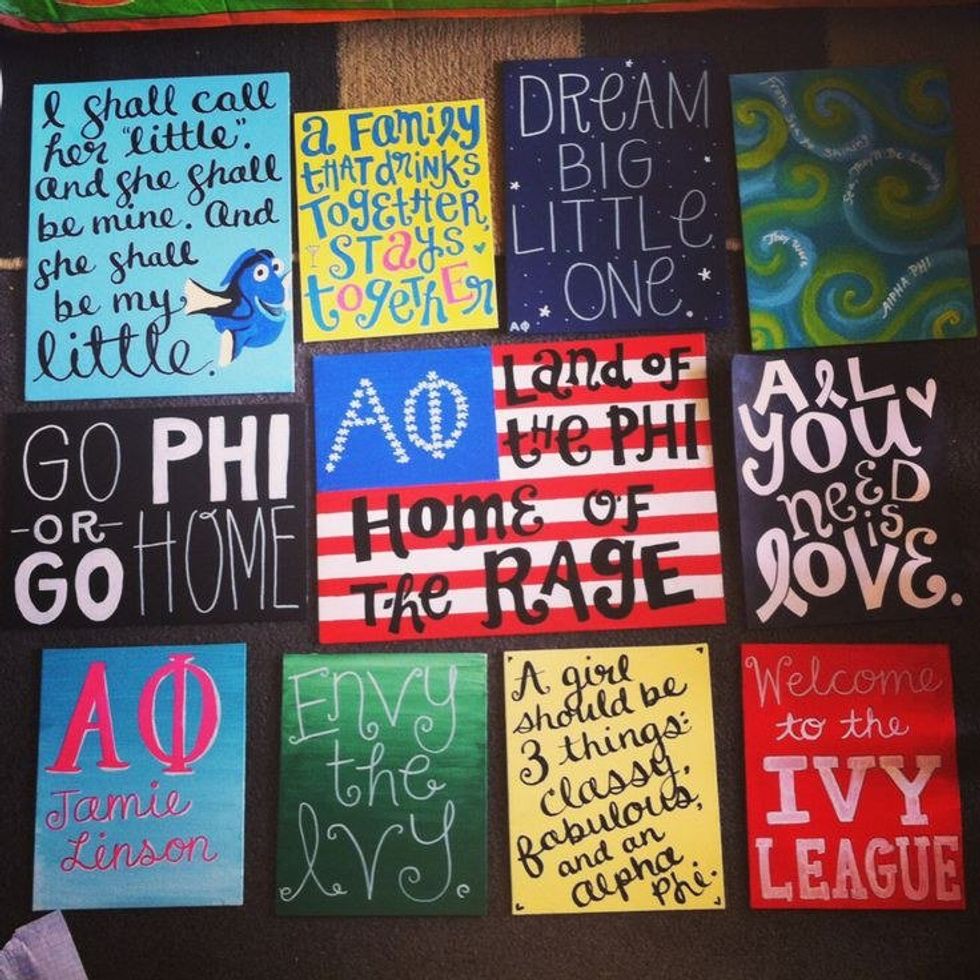 I shall call
her "little".
and she shall
be mine. And
she shall
be my
little.
a FamiLy
tHATdrinks
TogEtHer,
STays
togetHEr
DReAM
BIG
LITTLe
ONe.
AΦ
They were
ALPHA PHI
GO PHI
-OR-
GO HOME
AΦ
Land of
the PHI
Home of
The RAGE
ALL
you
neED
is
LOVE.
AΦ
Jamie
Linson
Envy
the
Ivy.
A girl
should be
3 things:
classy,
fabulous,
and an
alpha
phi.
Welcome
to the
IVY
LEAGUE